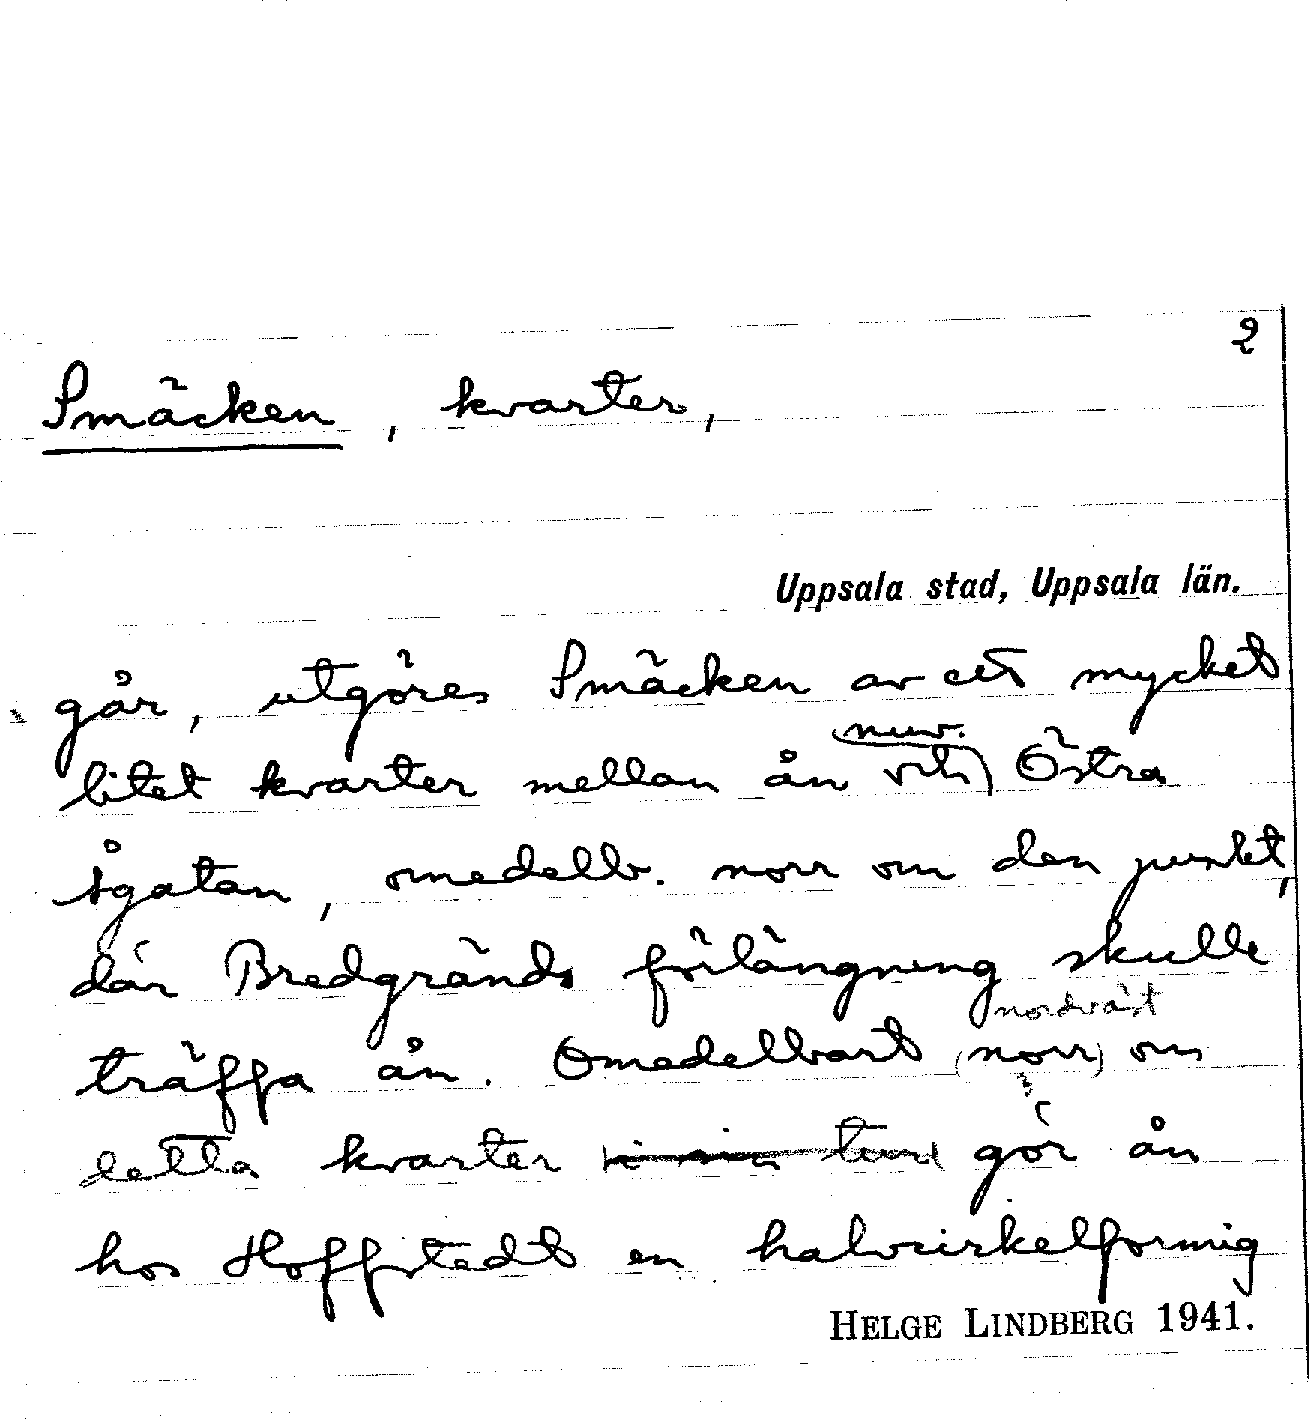 2
Smäcken, kvarter,
Uppsala stad, Uppsala län.
går, utgöres Smäcken av ett mycket
nuv.
litet kvarter mellan ån och) Östra
Ågatan, omedelb. norr om den punkt,
där Bredgränds förlängning skulle
nordväst
träffa ån. Omedelbart (norr) om
detta kvarter gör ån
hos Hoffstedt en halvcirkelformig
HELGE LINDBERG 1941.